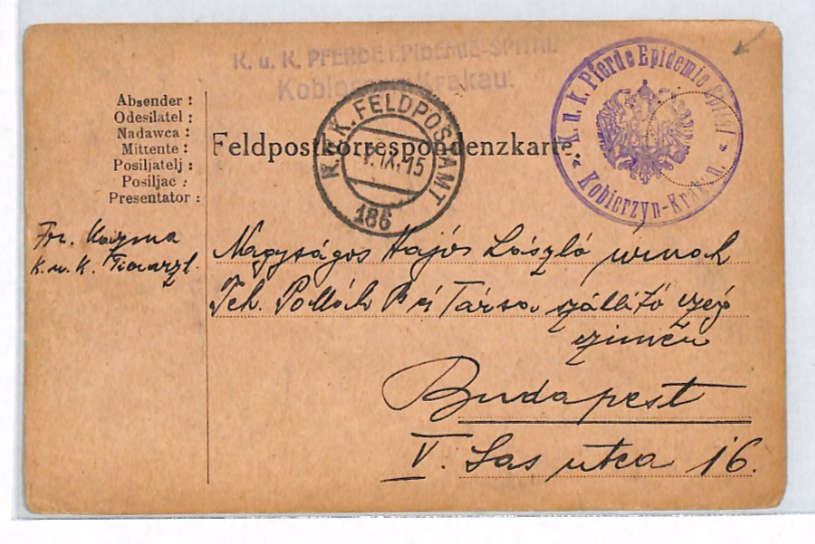 K. u. K. PFERDE EPIDEMIE-SPITAL
Kobierzyn-Krakau.
K. u. k. Pferde Epidemie Spital
Kobierzyn-Krakau.
K.u.K. FELDPOSTAMT
IX. 15
186
Absender :
Odesilatel :
Nadawca :
Mittente :
Posiljatelj :
Posiljac :
Presentator :
Feldpostkorrespondenzkarte.
Fr.
K. u. K. Tierarzt
Nagyságos Hajós László urnak
Teh. Pollák és Társa szállító czég
czimén
Budapest
V. Sas utca 16.